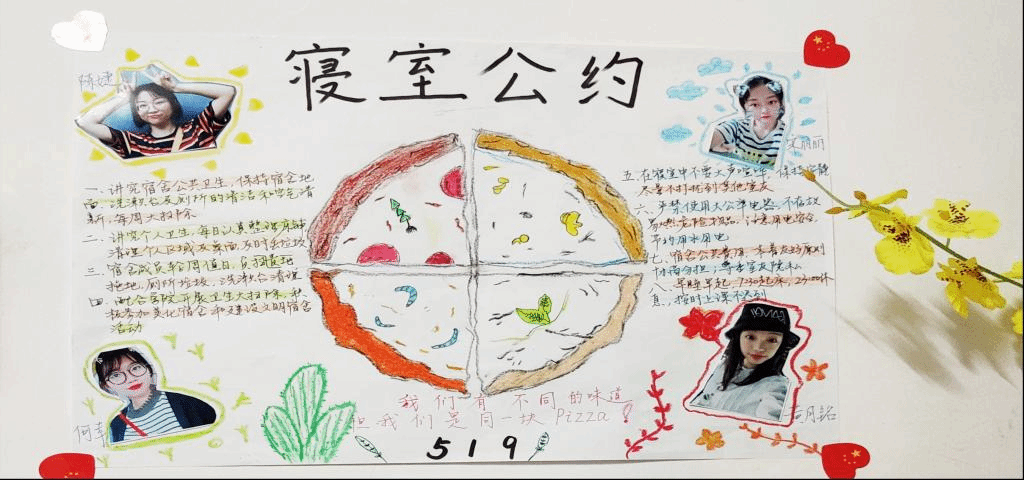 寝室公约
陈婕
一、讲究宿舍公共卫生，保持宿舍地
面、洗漱台及厕所的清洁和空气清
新，每周大扫除
二、讲究个人卫生，每日认真整理床铺
清理个人区域及桌面，及时丢垃圾
三、宿舍成员轮周值日，负担扫地
拖地，厕所垃圾，洗漱台清理
四、配合学院开展卫生大扫除，积
极参加美化宿舍和建设文明宿舍
活动
丽丽
五、在寝室中不要大声喧哗，保持安静
尽量不打扰到其他室友
六、严禁使用大功率电器，不存放
易燃危险物品，注意用电安全，
节约用水用电
七、宿舍公共费用，本着友好原则
协商分担，尊重室友隐私
八、早睡早起，7:30起床，23:00休
息，按时上课不迟到
何
月
我们有不同的味道
但我们是同一块Pizza！
519